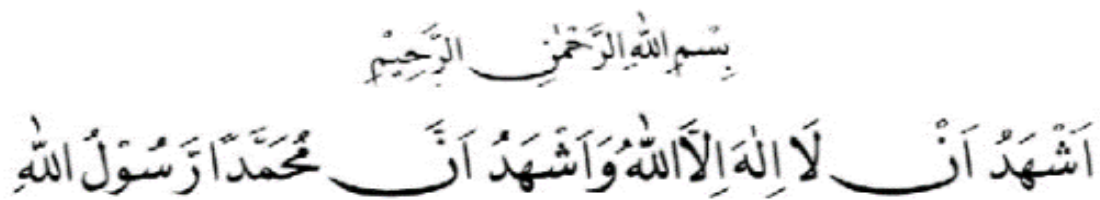 بِسْمِ اللّٰهِ الرَّحْمٰنِ الرَّحِيْمِ
اَشْهَدُ اَنْ لَا اِلٰهَ اِلَّا اللّٰهُ وَاَشْهَدُ اَنَّ مُحَمَّدًا رَّسُوْلُ اللّٰهِ